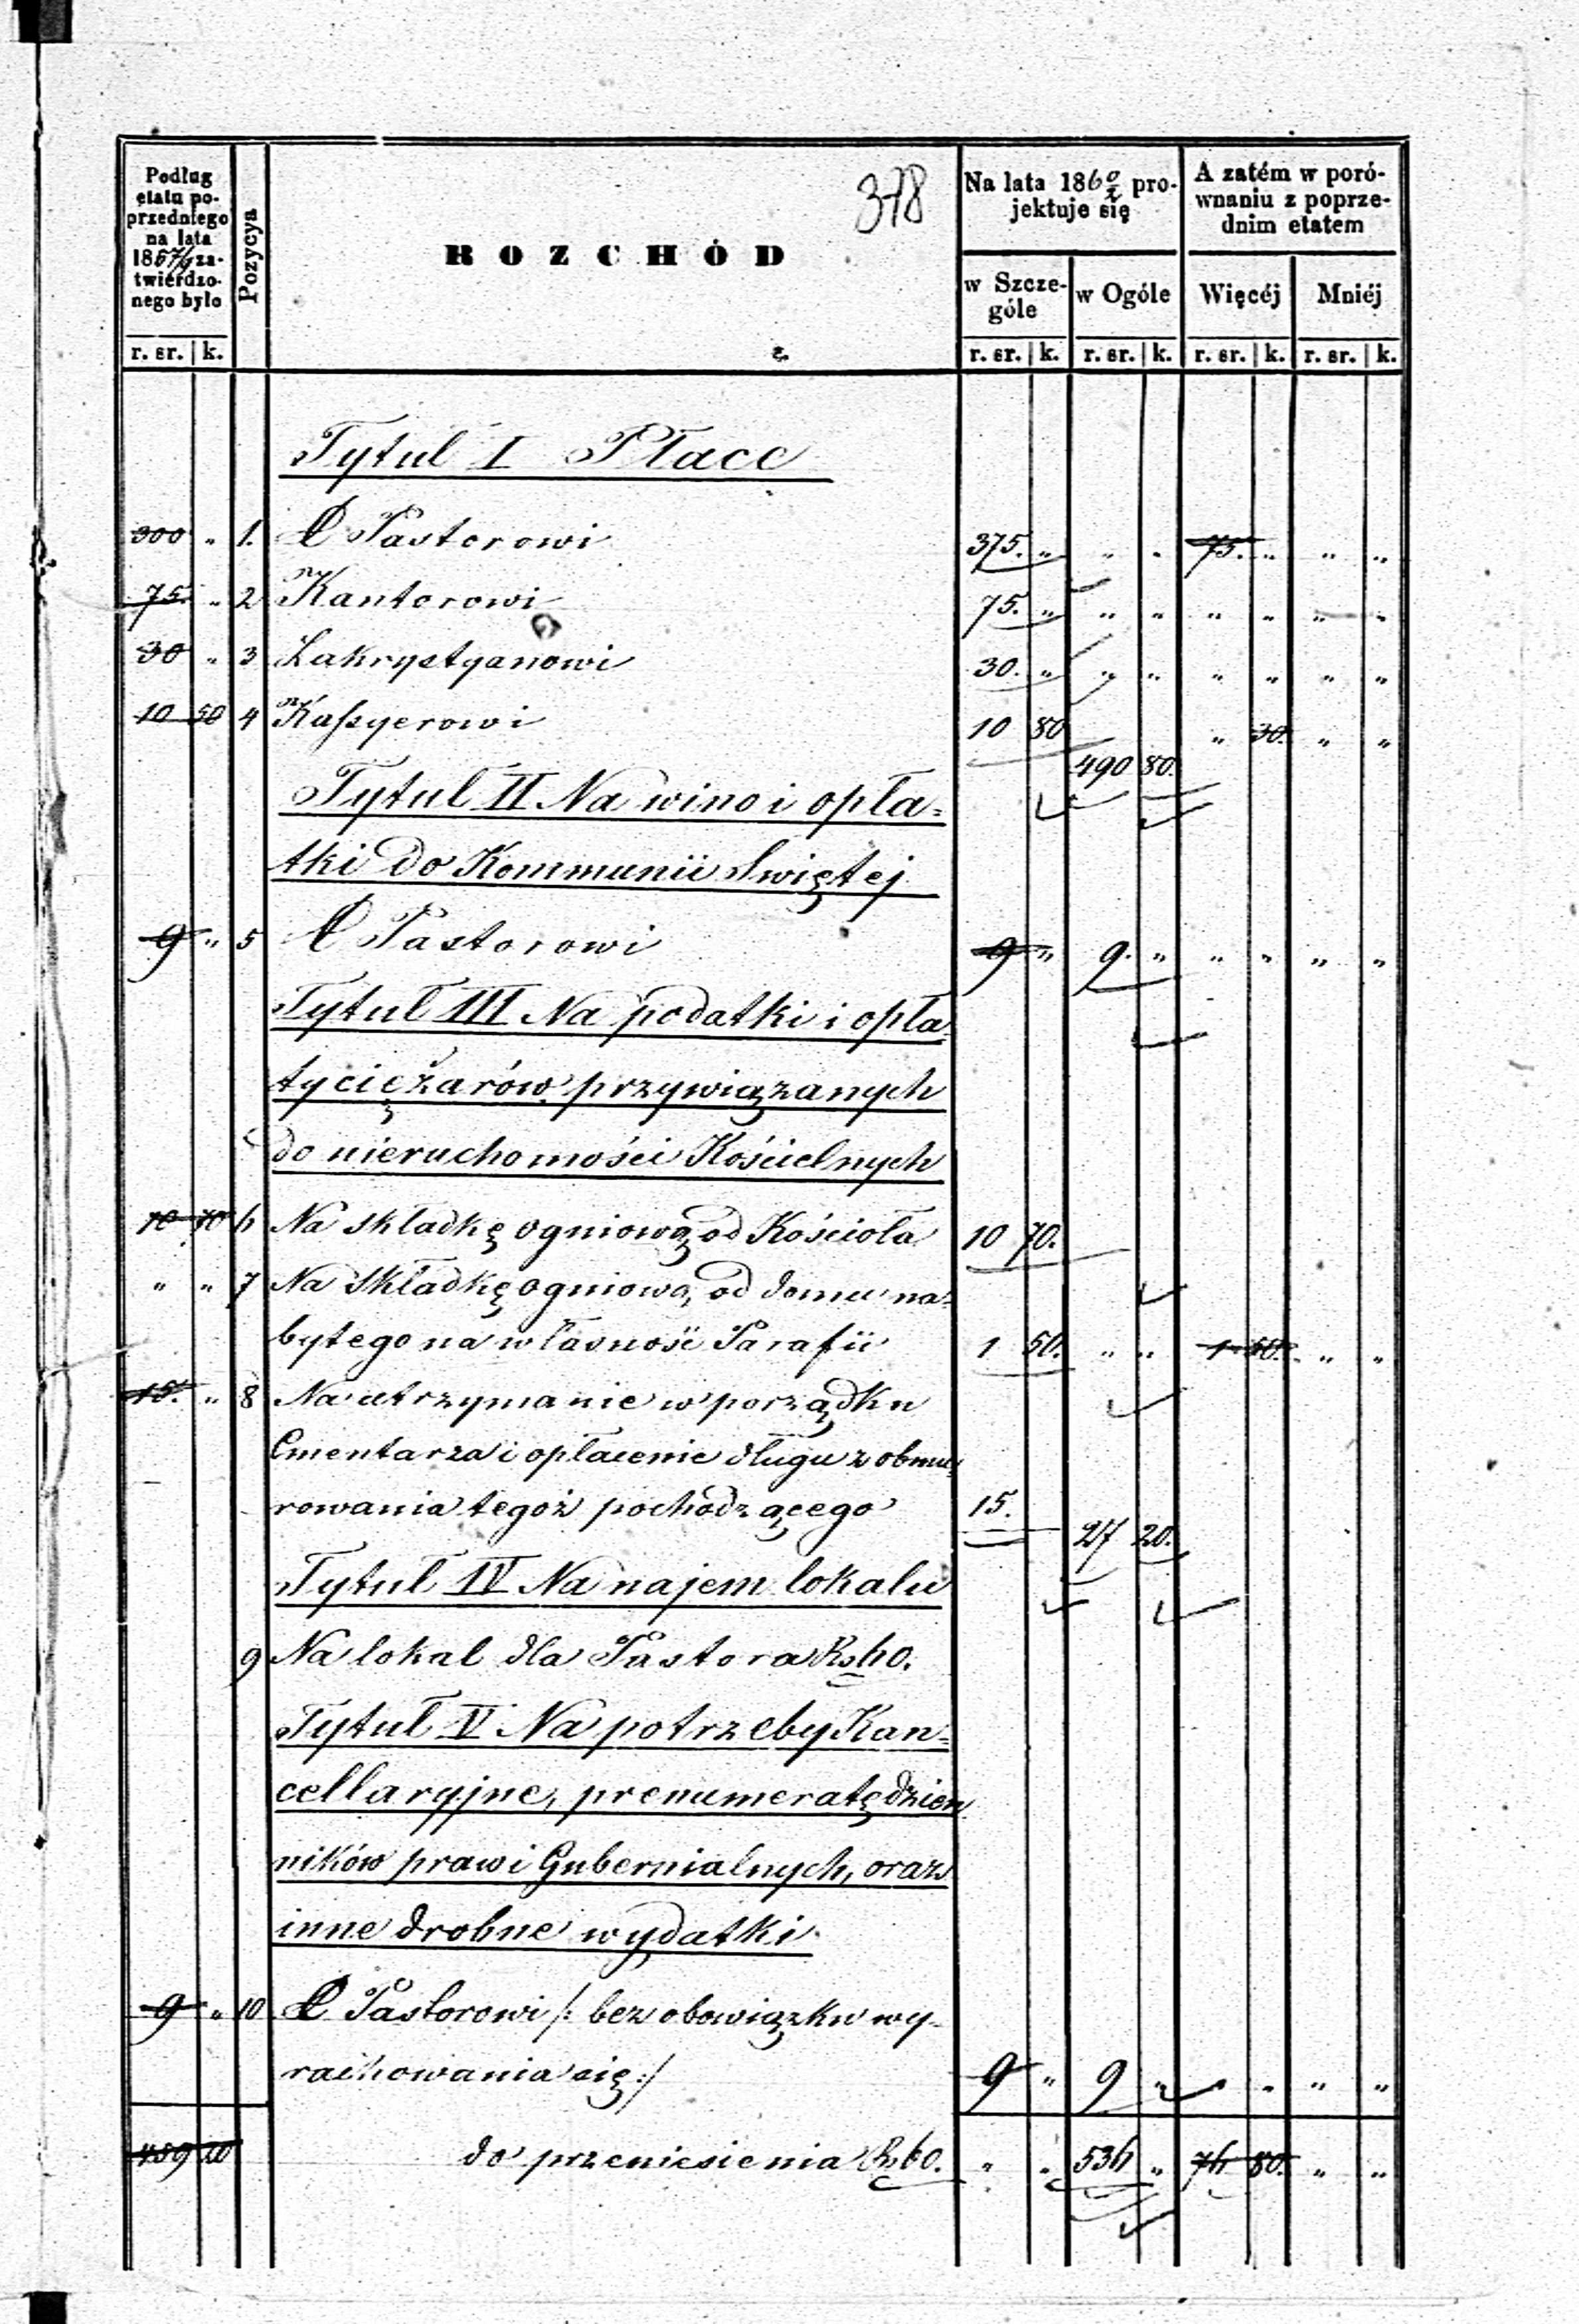 378
Podług etatu poprzedniego na lata 1857/9 zatwierdzonego było
Pozycya
ROZCHÓD
Na lata 186 0/2 projektuje się
A zatém w porównaniu z poprzednim etatem
w Szczególe
w Ogóle
Więcéj
Mniéj
r. sr. | k.
r. sr. | k. r. sr. | k. r. sr. | k. r. sr. | k.
Tytuł I Płace
300 „ 1. Pastorowi 375. „ „ „ 75. „ „ „
75. „ 2 Kantorowi 75. „ „ „ „ „ „ „
30 „ 3 Zakrystyanowi 30. „ „ „ „ „ „ „
10 50 4 Kassyerowi 10 80 „ 30. „ „
490 80.
Tytuł II Na wino i opła=
tki do Kommunii Swiętej
9 „ 5 Pastorowi 9 „ 9. „ „ „ „ „
Tytuł III Na podatki i opła
ty ciężarów przywiązanych
do nieruchomości Kościelnych
10 70 6 Na składkę ogniową od Kościoła 10 70.
„ „ 7 Na składkę ogniową od domu na=
bytego na własność Parafii 1 50. „ „ 1 50. „ „
15. „ 8 Na utrzymanie w porządku
Cmentarza i opłacenie długu z obmu=
rowania tegoż pochodzącego 15.
27 20.
Tytuł IV Na najem lokalu
9 Na lokal dla Pastora Rs 60.
Tytuł V Na potrzeby Kan=
cellaryjne, prenumeratę dzien
ników praw i Gubernialnych, oraz
inne drobne wydatki
9 „ 10 Pastorowi /: bez obowiązku wy-
rachowania się :/ 9 „ 9 „ „ „ „ „
459 20 do przeniesienia Rs 60. „ „ 536 „ 76 80. „ „